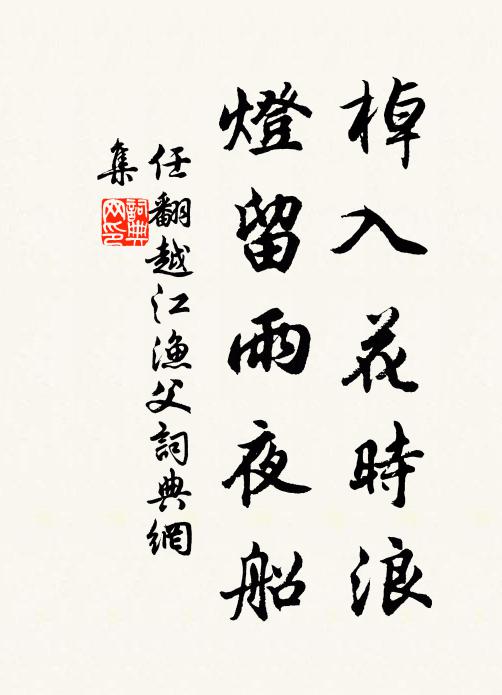 棹入花時浪
燈留雨夜船
任翻越江漁父詞典網
集
詞典
网印